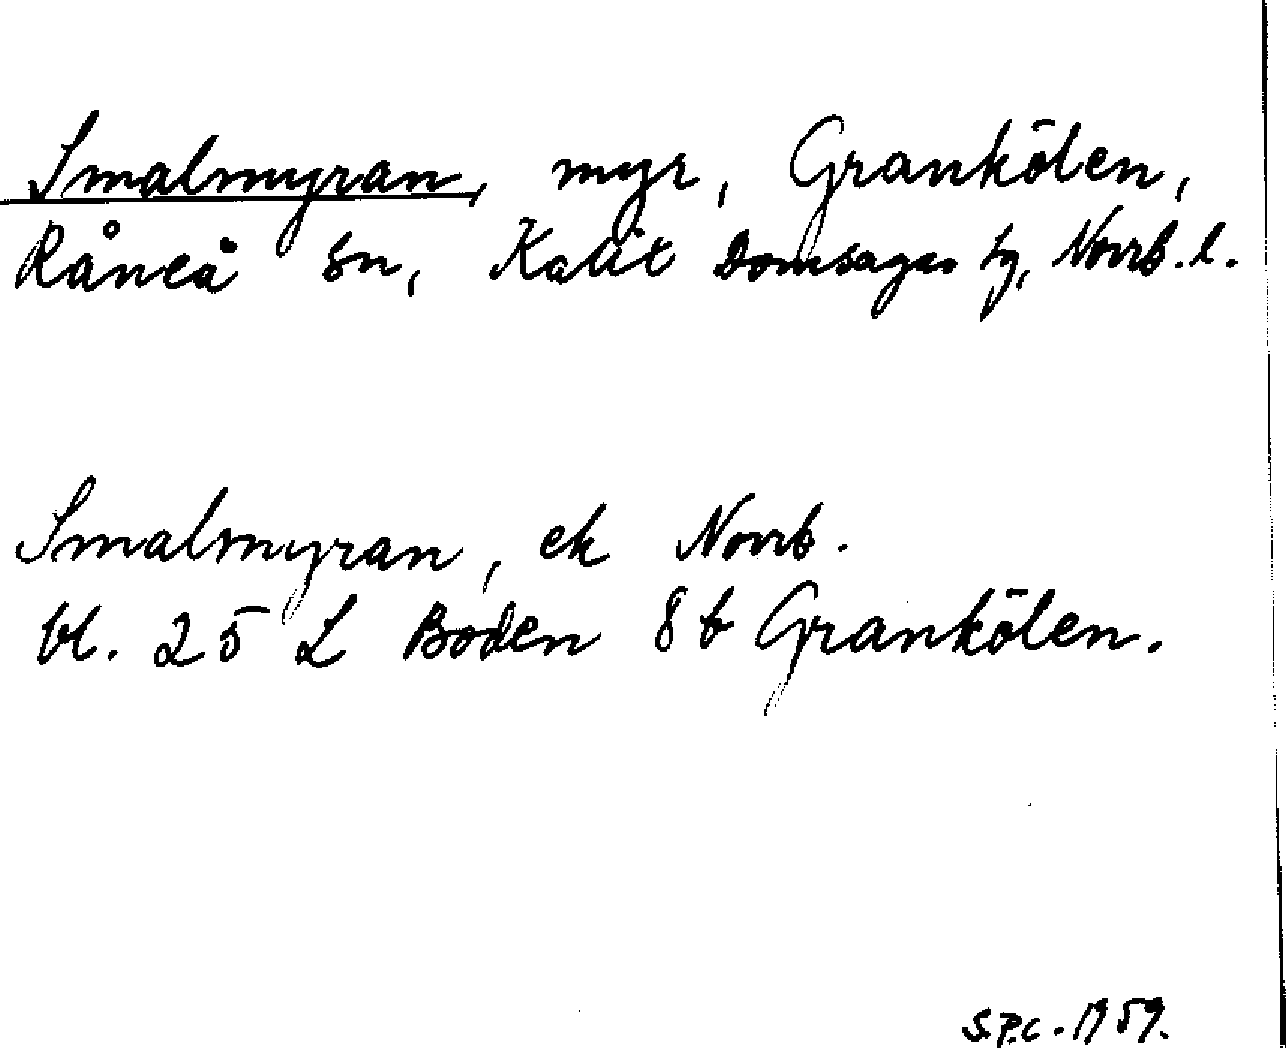 Smalmyran, myr, Grankölen,
Råneå sn, Kalix Domsagas tg, Norrb. l.
Smalmyran, ek Norrb.
bl. 25 L Boden 8 b Grankölen.
S.P.C. 1959.